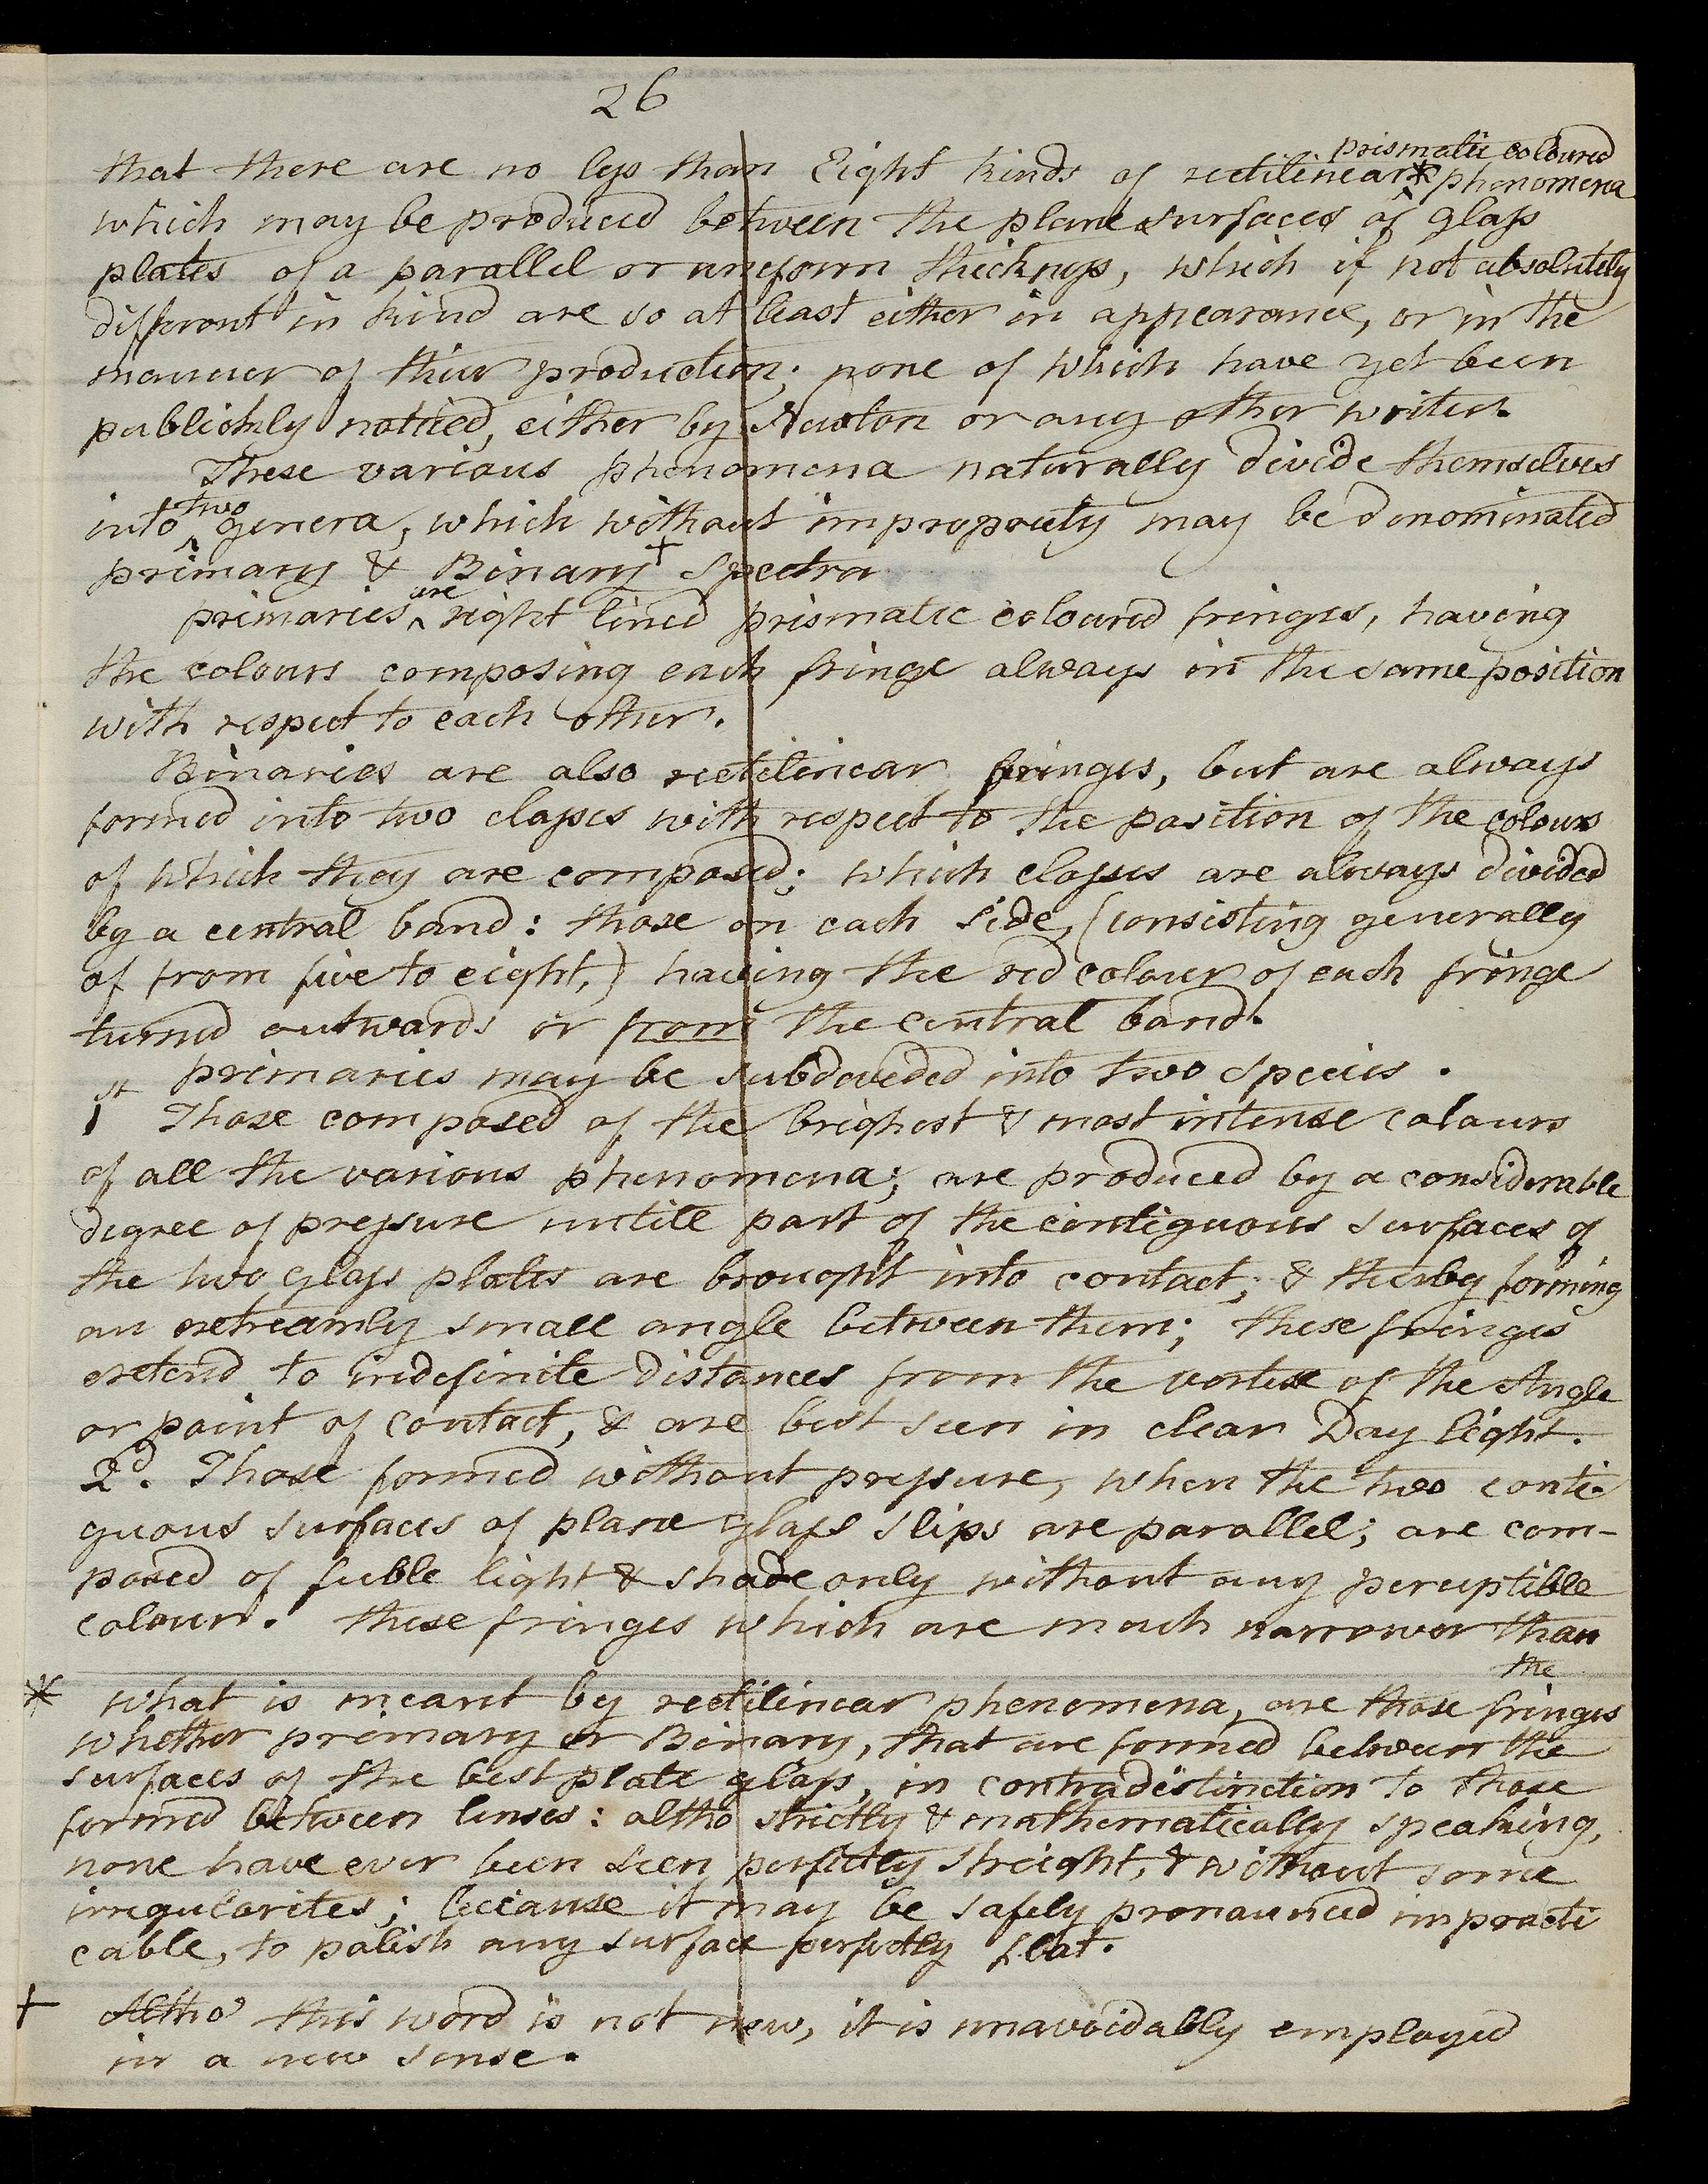 26
that there are no less than Eight kinds of rectilinear * ^ prismatic coloured phenomena
which may be produced between the plane surfaces of glass
plates of a parallel or uniform thickness, which if not absolutely
different in kind are so at least either in appearance, or in the
manner of their production; none of which have yet been
publickly noticed, either by Newton or any other writer.
These various phenomena naturally divide themselves
into ^ two genera, which without impropriety may be denominated
primary & Binary + Spectra
primaries ^ are right lined prismatic coloured fringes, having
the colours composing each fringe always in the same position
with respect to each other.
Binaries are also rectilinear fringes, but are always
formed into two classes with respect to the position of the colours
of which they are composed; which classes are always divided
by a central band: those on each side, (consisting generally
of from five to eight,) having the red colour of each fringe
turned outwards or from the central band.
primaries may be subdevided into two species.
1st Those composed of the brighest & most intense colours
of all the various phenomena; are produced by a considerable
degree of pressure untill part of the contiguous surfaces of
the two glass plates are brought into contact; & therby forming
an extreamly small angle between them; these fringes
extend to indefinite distances from the vortex of the Angle
or point of contact, & are best seen in clear Day light.
2d. Those formed without pressure, when the two conti-
guous surfaces of plane glass slips are parallel; are com-
posed of feeble light & shade only without any perceptible
colour. these fringes which are much narrower than
the
* What is meant by rectilinear phenomena, are those fringes
whether primary or Binary, that are formed between the
surfaces of the best plate glass, in contradistinction to those
formed between linses: altho strictly & mathematically speaking,
none have ever been seen perfectly streight, & without some
irregularites; beciause it may be safely pronaunced impracti
cable, to polish any surface perfectly flat.
+ Altho' this word is not new, it is unavoidably employed
in a new sense.